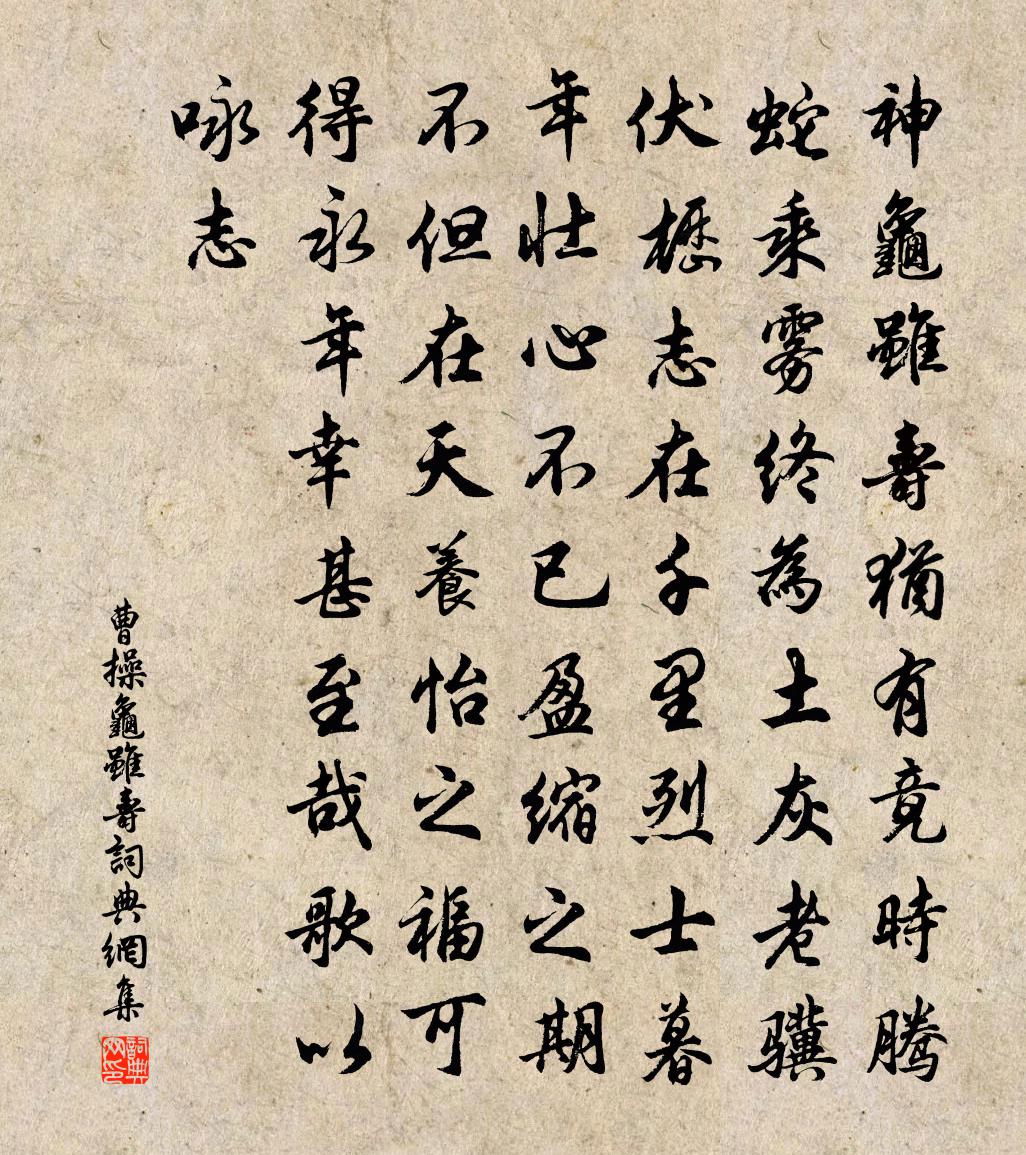 神龜雖壽猶有竟時騰
蛇乘雾终為土灰老骥
伏櫪志在千里烈士暮
年壮心不已盈缩之期
不但在天養怡之福可
得永年幸甚至哉歌以
咏志
曹操龜雖壽詞典網集
詞典网印